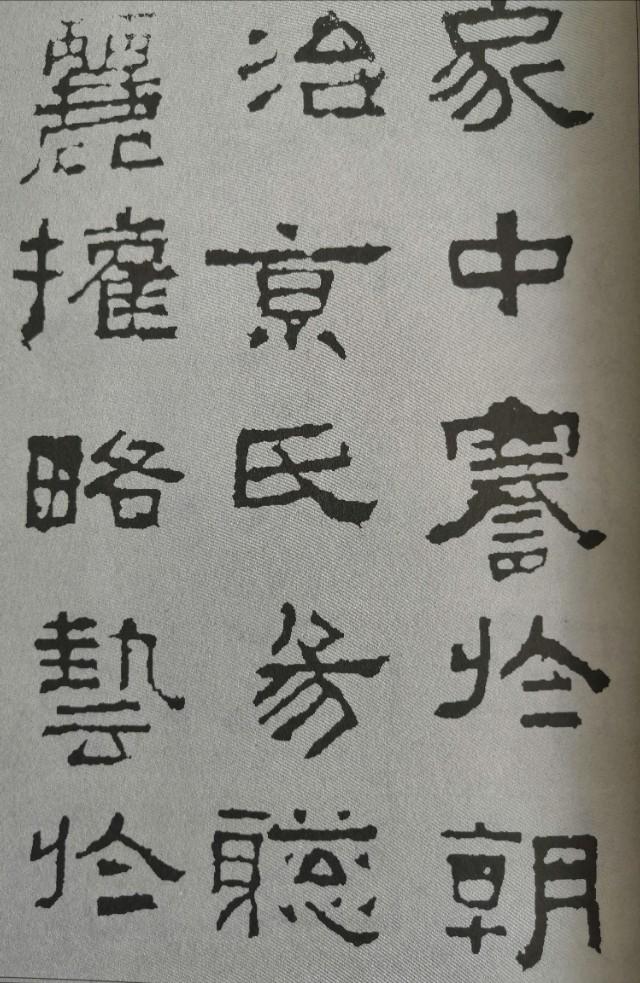 家中謇於朝
治京氏易聰
麗權略藝於